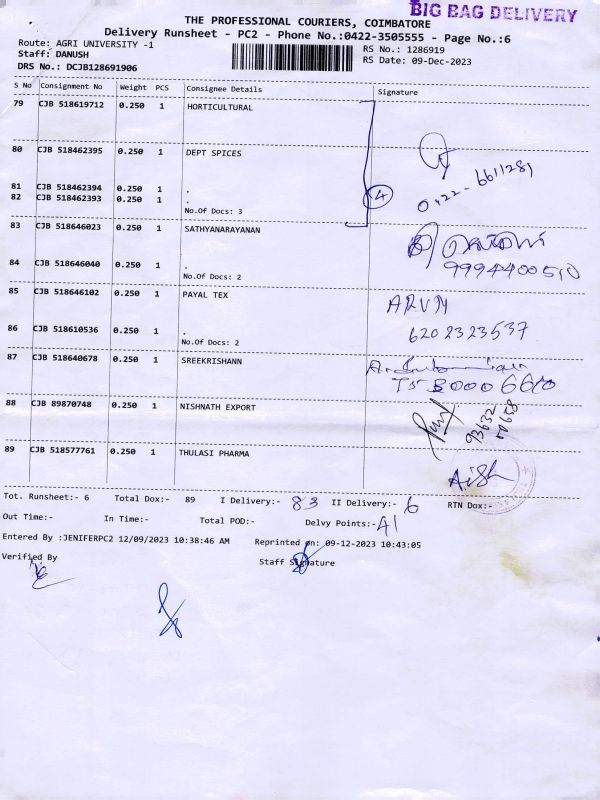 BIG BAG DELIVERY
THE PROFESSIONAL COURIERS, COIMBATORE
Delivery Runsheet - PC2 - Phone No.:0422-3505555 - Page No.:6
Route: AGRI UNIVERSITY -1
RS No.: 1286919
Staff: DANUSH
RS Date: 09-Dec-2023
DRS No.: DCJB128691906
S No Consignment No Weight PCS Consignee Details Signature
79 CJB 518619712 0.250 1 HORTICULTURAL
80 CJB 518462395 0.250 1 DEPT SPICES
0422-6611281
81 CJB 518462394 0.250 1 .
82 CJB 518462393 0.250 1 .
4
No.Of Docs: 3
83 CJB 518646023 0.250 1 SATHYANARAYANAN
84 CJB 518646040 0.250 1 .
9994400510
No.Of Docs: 2
85 CJB 518646102 0.250 1 PAYAL TEX
ARUN
86 CJB 518610536 0.250 1 .
6202323537
No.Of Docs: 2
87 CJB 518640678 0.250 1 SREEKRISHANN
88 CJB 89870748 0.250 1 NISHNATH EXPORT
89 CJB 518577761 0.250 1 THULASI PHARMA
Aish
Tot. Runsheet:- 6 Total Dox:- 89 I Delivery:- 83 II Delivery:- 6 RTN Dox:-
Out Time:- In Time:- Total POD:- Delvy Points:- 41
Entered By :JENIFERPC2 12/09/2023 10:38:46 AM Reprinted on: 09-12-2023 10:43:05
Verified By Staff Signature